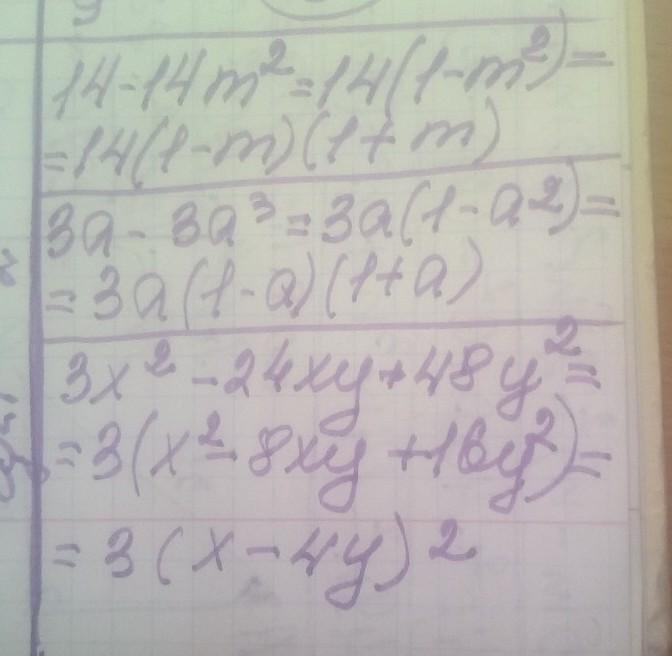 14-14m²=14(1-m²)=
=14(1-m)(1+m)
3a-3a³=3a(1-a²)=
=3a(1-a)(1+a)
3x²-24xy+48y²=
=3(x²-8xy+16y²)=
=3(x-4y)²